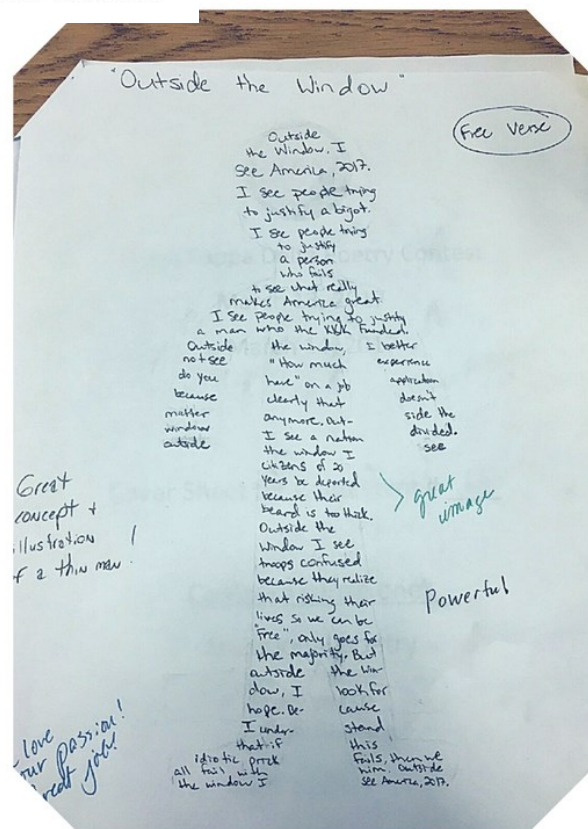 "Outside the Window"
Free Verse
Outside
the Window, I
See America, 2017.
I see people trying
to justify a bigot.
I see people trying
to justify
a person
who fails
to see what really
makes America great.
I see people trying to justify
a man who the KKK funded.
Outside the window, I better
not see "How much experience
do you have" on a job application
because clearly that doesn't
matter anymore. Out- side the
window I see a nation divided.
outside the window I see
citizens of 20
years be deported
because their
beard is too thick.
Outside the
window I see
troops confused
because they realize
that risking their
lives so we can be
"free", only goes for
the majority. But
outside the win-
dow, I look for
hope. Be- cause
I under- stand
that if this
idiotic prick fails, then we
all fail with him. Outside
the window I see America, 2017.
Great
concept +
illustration
of a thin man!
great
image
Powerful
love
your passion!
Great job!